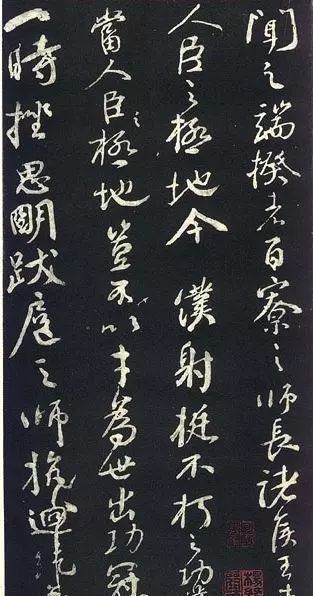 聞之端揆者百寮之師長諸侯王
人臣之極地今僕射挺不朽之功
當人臣之極地豈不以才為世出功冠
一時挫思明跋扈之師抗迴紇